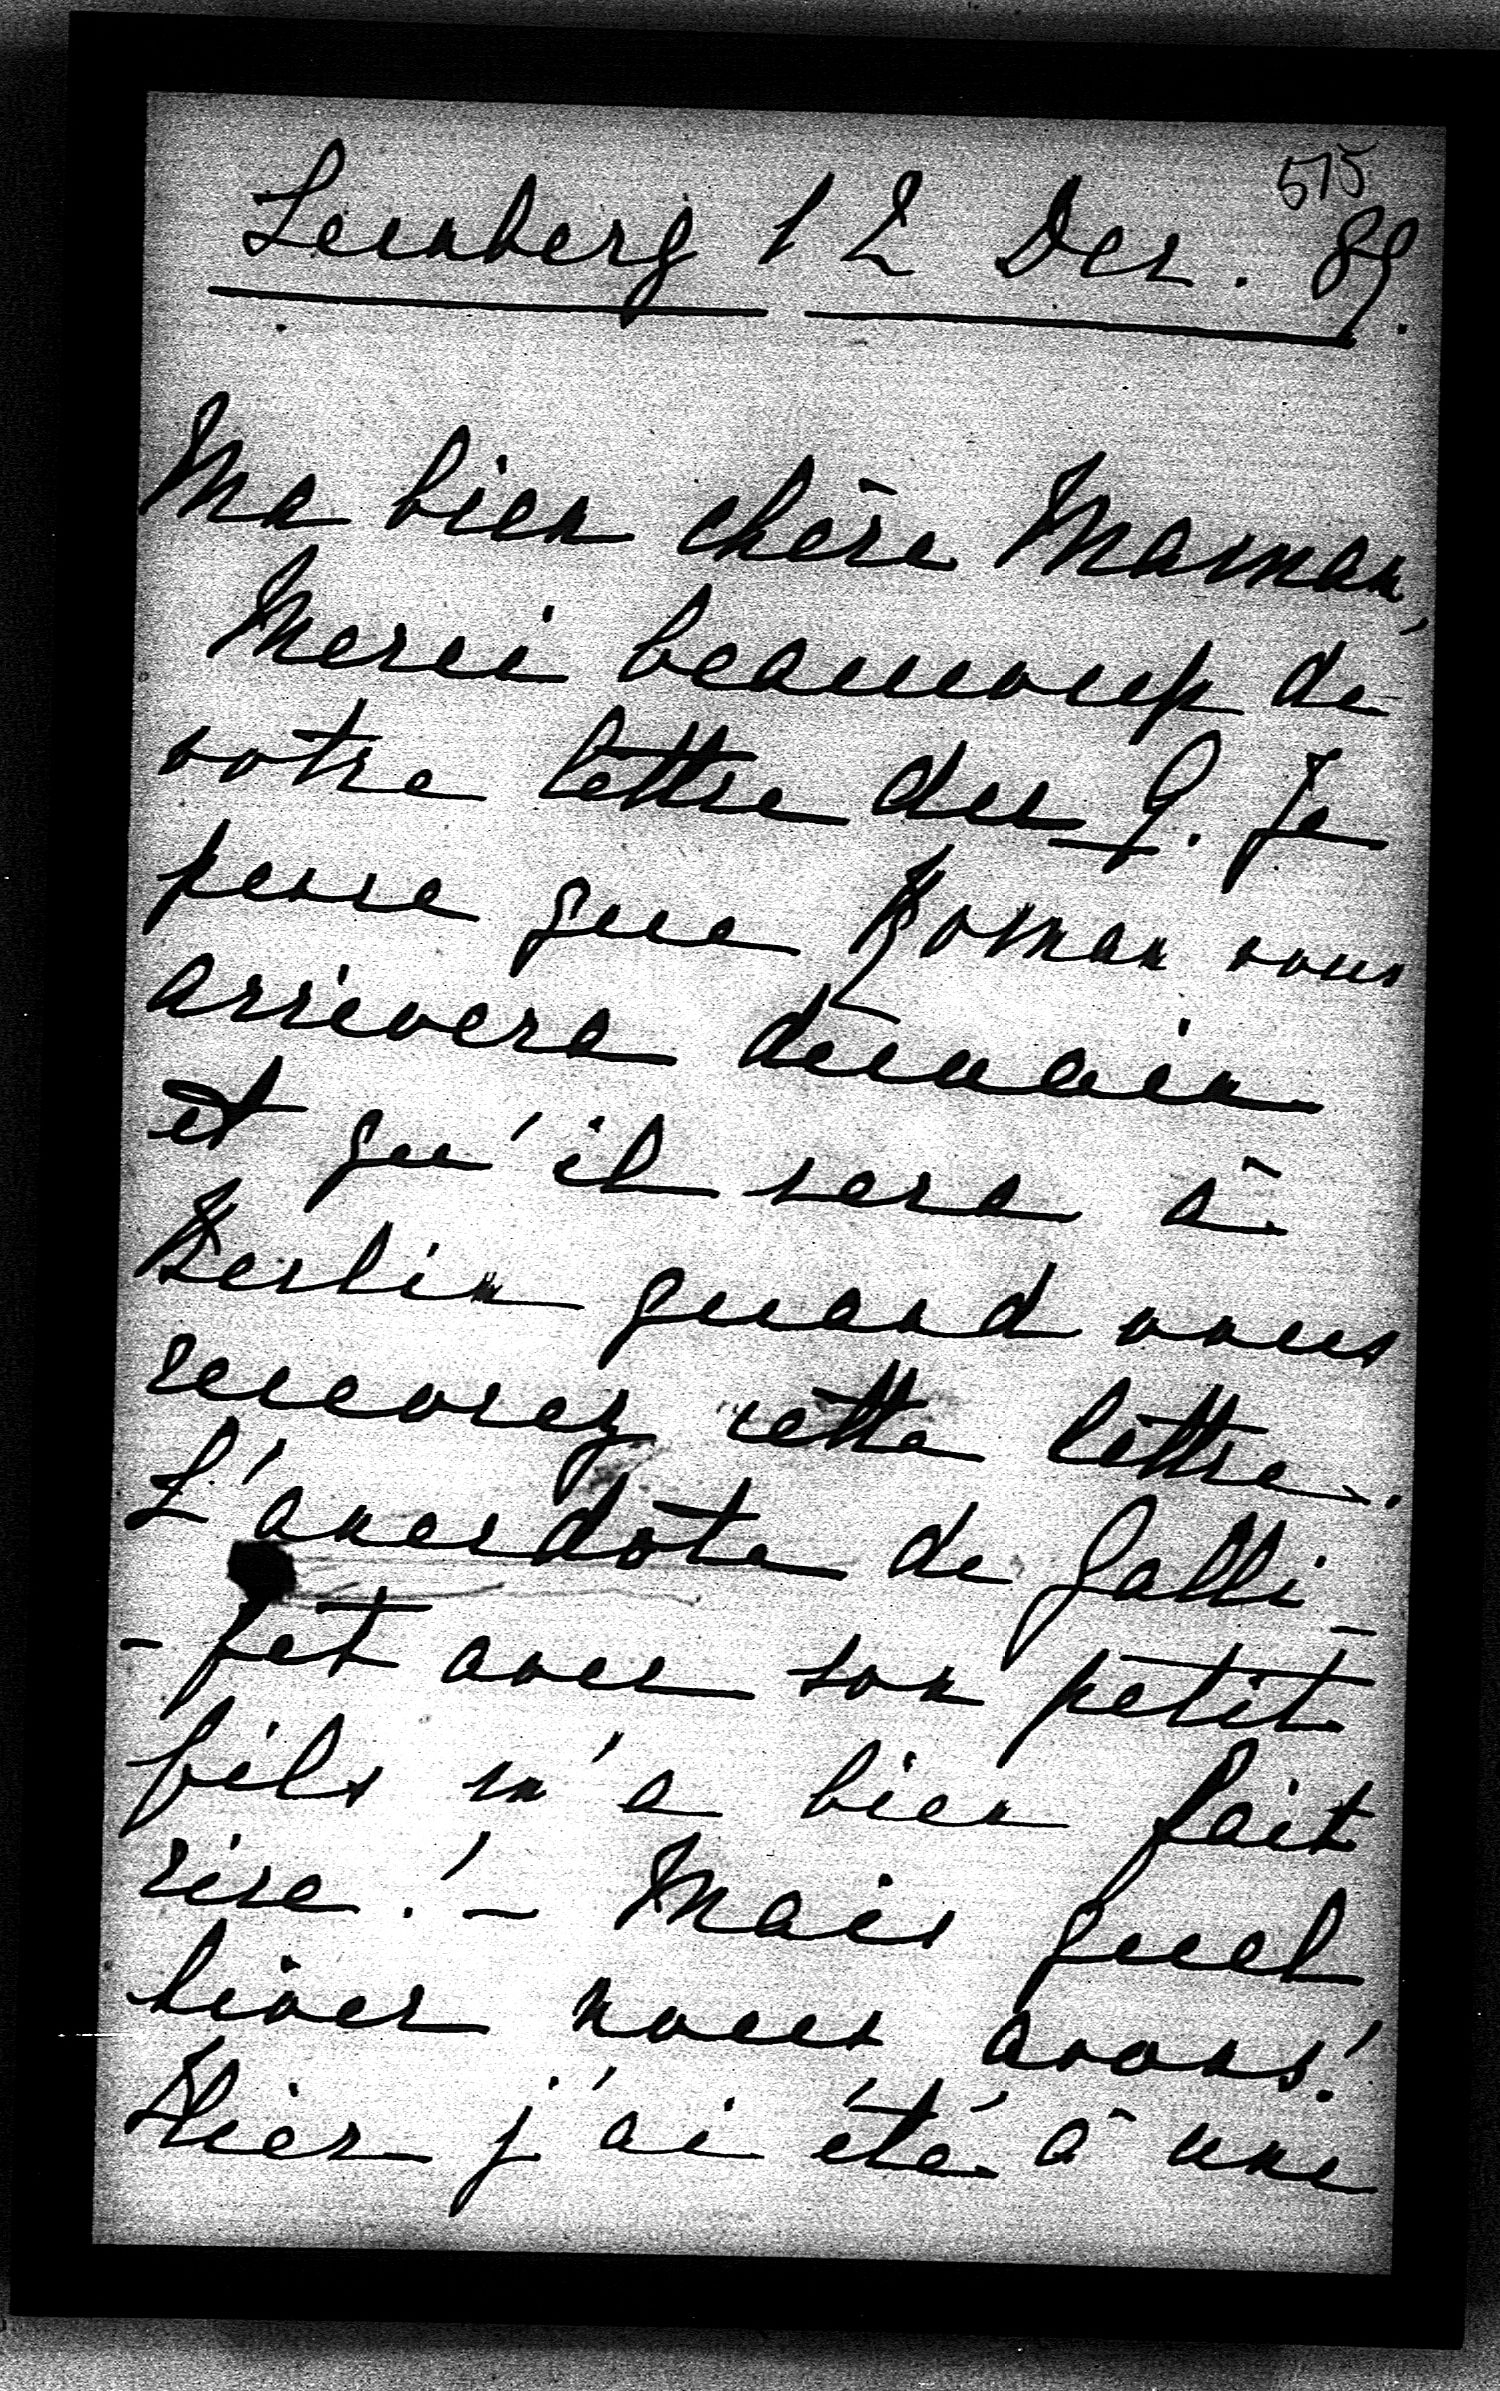 575
Lemberg 12 Dec. 89.
Ma bien chère Maman,
Merci beaucoup de
votre lettre du 9. Je
pense que Roman vous
arrivera demain
et qu'il sera à
Berlin quand vous
recevrez cette lettre.
L'anecdote de Galli-
-fet avec son petit
fils m'a bien fait
rire! - Mais quel
hiver nous avons!
Hier j'ai été à une